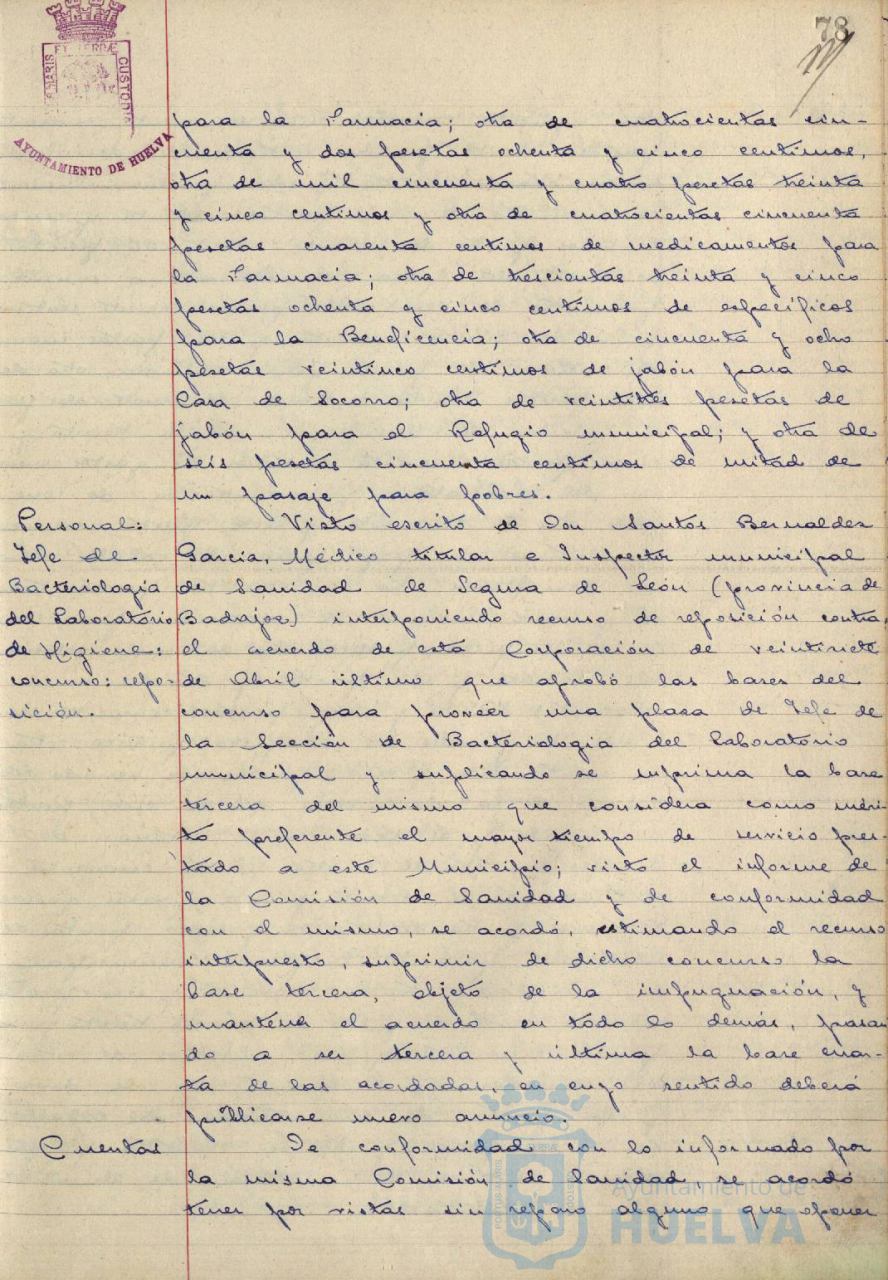 78
PORTUS MARIS ET TERRÆ CUSTODIA
AYUNTAMIENTO DE HUELVA
para la Farmacia; otra de cuatrocientas cin-
cuenta y dos pesetas ochenta y cinco centimos,
otra de mil cincuenta y cuatro pesetas treinta
y cinco centimos y otra de cuatrocientas cincuenta
pesetas cuarenta centimos de medicamentos para
la Farmacia; otra de trescientas treinta y cinco
pesetas ochenta y cinco centimos de especificos
para la Beneficencia; otra de cincuenta y ocho
pesetas veinticinco centimos de jabón para la
Casa de Socorro; otra de veintitres pesetas de
jabón para el Refugio municipal; y otra de
seis pesetas cincuenta centimos de mitad de
un pasaje para pobres.
Personal:
Jefe de
Bacteriologia
del Laboratorio
de Higiene:
concurso: repo-
sición.
Visto escrito de Don Santos Bernaldez
Garcia, Médico titular e Inspector municipal
de Sanidad de Segura de León (provincia de
Badajoz) interponiendo recurso de reposición contra
el acuerdo de esta Corporación de veintisiete
de Abril último que aprobó las bases del
concurso para proveer una plaza de Jefe de
la Sección de Bacteriologia del Laboratorio
municipal y suplicando se suprima la base
tercera del mismo que considera como méri-
to preferente el mayor tiempo de servicio pres-
tado a este Municipio; visto el informe de
la Comisión de Sanidad y de conformidad
con el mismo, se acordó, estimando el recurso
interpuesto, suprimir de dicho concurso la
base tercera, objeto de la impugnación, y
mantener el acuerdo en todo lo demás, pasan
do a ser tercera y última la base cuar-
ta de las acordadas, en cuyo sentido deberá
públicarse nuevo anuncio.
Cuentas
De conformidad con lo informado por
la misma Comisión de Sanidad, se acordó
tener por vistas sin reparo alguno que oponer
Ayuntamiento de
HUELVA